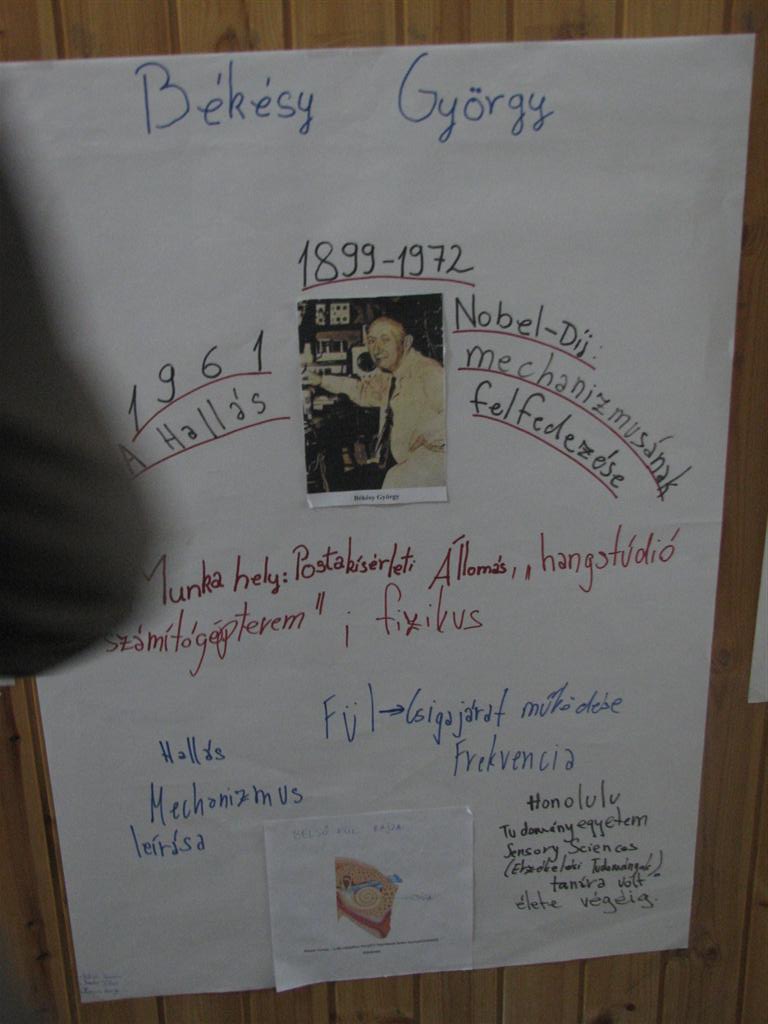 Békésy György
1899-1972
1961 Nobel-Díj:
A Hallás mechanizmusának
felfedezése
Békésy György
Munka hely: Postakísérleti Állomás, „hangstúdió
számítógépterem" ; fizikus
Fül → Csigajárat működése
Frekvencia
Hallás
Mechanizmus
leírása
Honolulu
Tudományegyetem
Sensory Sciences
(Érzékelési Tudományok)
tanára volt
élete végéig.
BELSŐ FÜL RAJZA